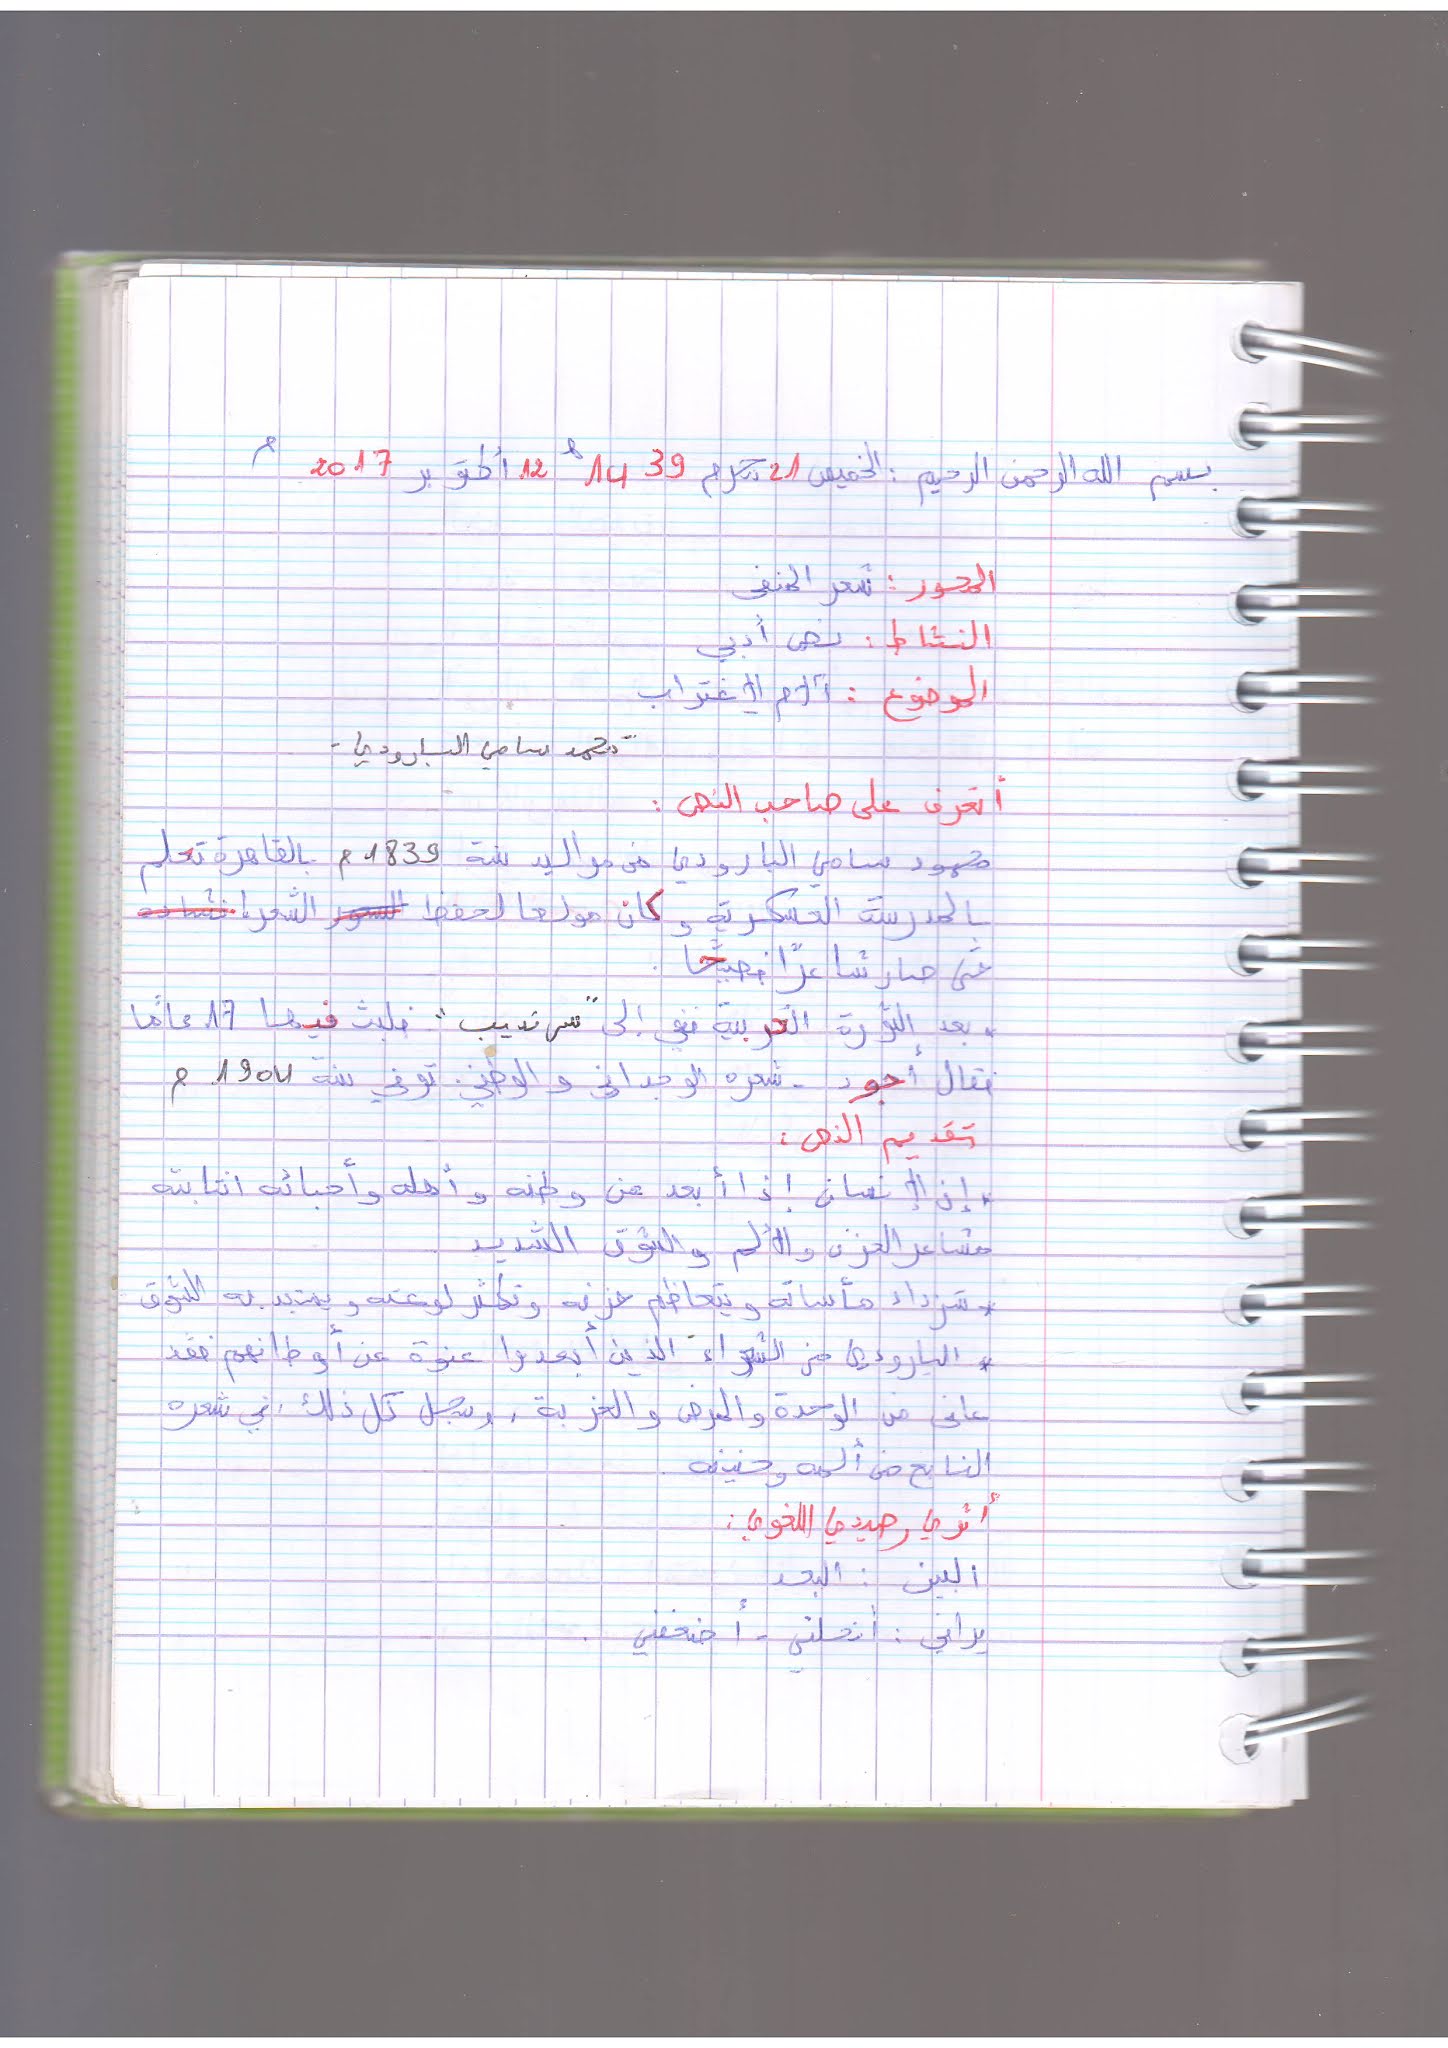 بسم الله الرحمن الرحيم : الخميس 21 محرم 1439 هـ 12 أكتوبر 2017 م
المحور : شعر المنفى
النشاط : نص أدبي
الموضوع : آلام الاغتراب
- محمد سامي البارودي -
أتعرف على صاحب النص :
محمود سامي البارودي من مواليد سنة 1839 م بالقاهرة تعلم
بالمدرسة العسكرية و كان مولعا لحفظ الشعر
حتى صار شاعرًا فصيحًا .
• بعد الثورة العربية نفي إلى "سرنديب" فلبث فيها 17 عامًا
فقال أجود شعره الوجداني و الوطني . توفي سنة 1904 م
تقديم النص :
* إن الإنسان إذا أبعد عن وطنه و أهله و أحبائه انتابته
مشاعر الحزن و الألم و الشوق الشديد
* تزداد مأساته و يتعاظم حزنه و تكثر لوعته و يمتد به الشوق
* البارودي من الشعراء الذين أبعدوا عنوة عن أوطانهم فقد
عانى من الوحدة والمرض والغربة ، وسجل كل ذلك في شعره
النابع من ألمه و حنينه .
أثري رصيدي اللغوي :
البين : البعد
براني : أنحلني - أضعفني .